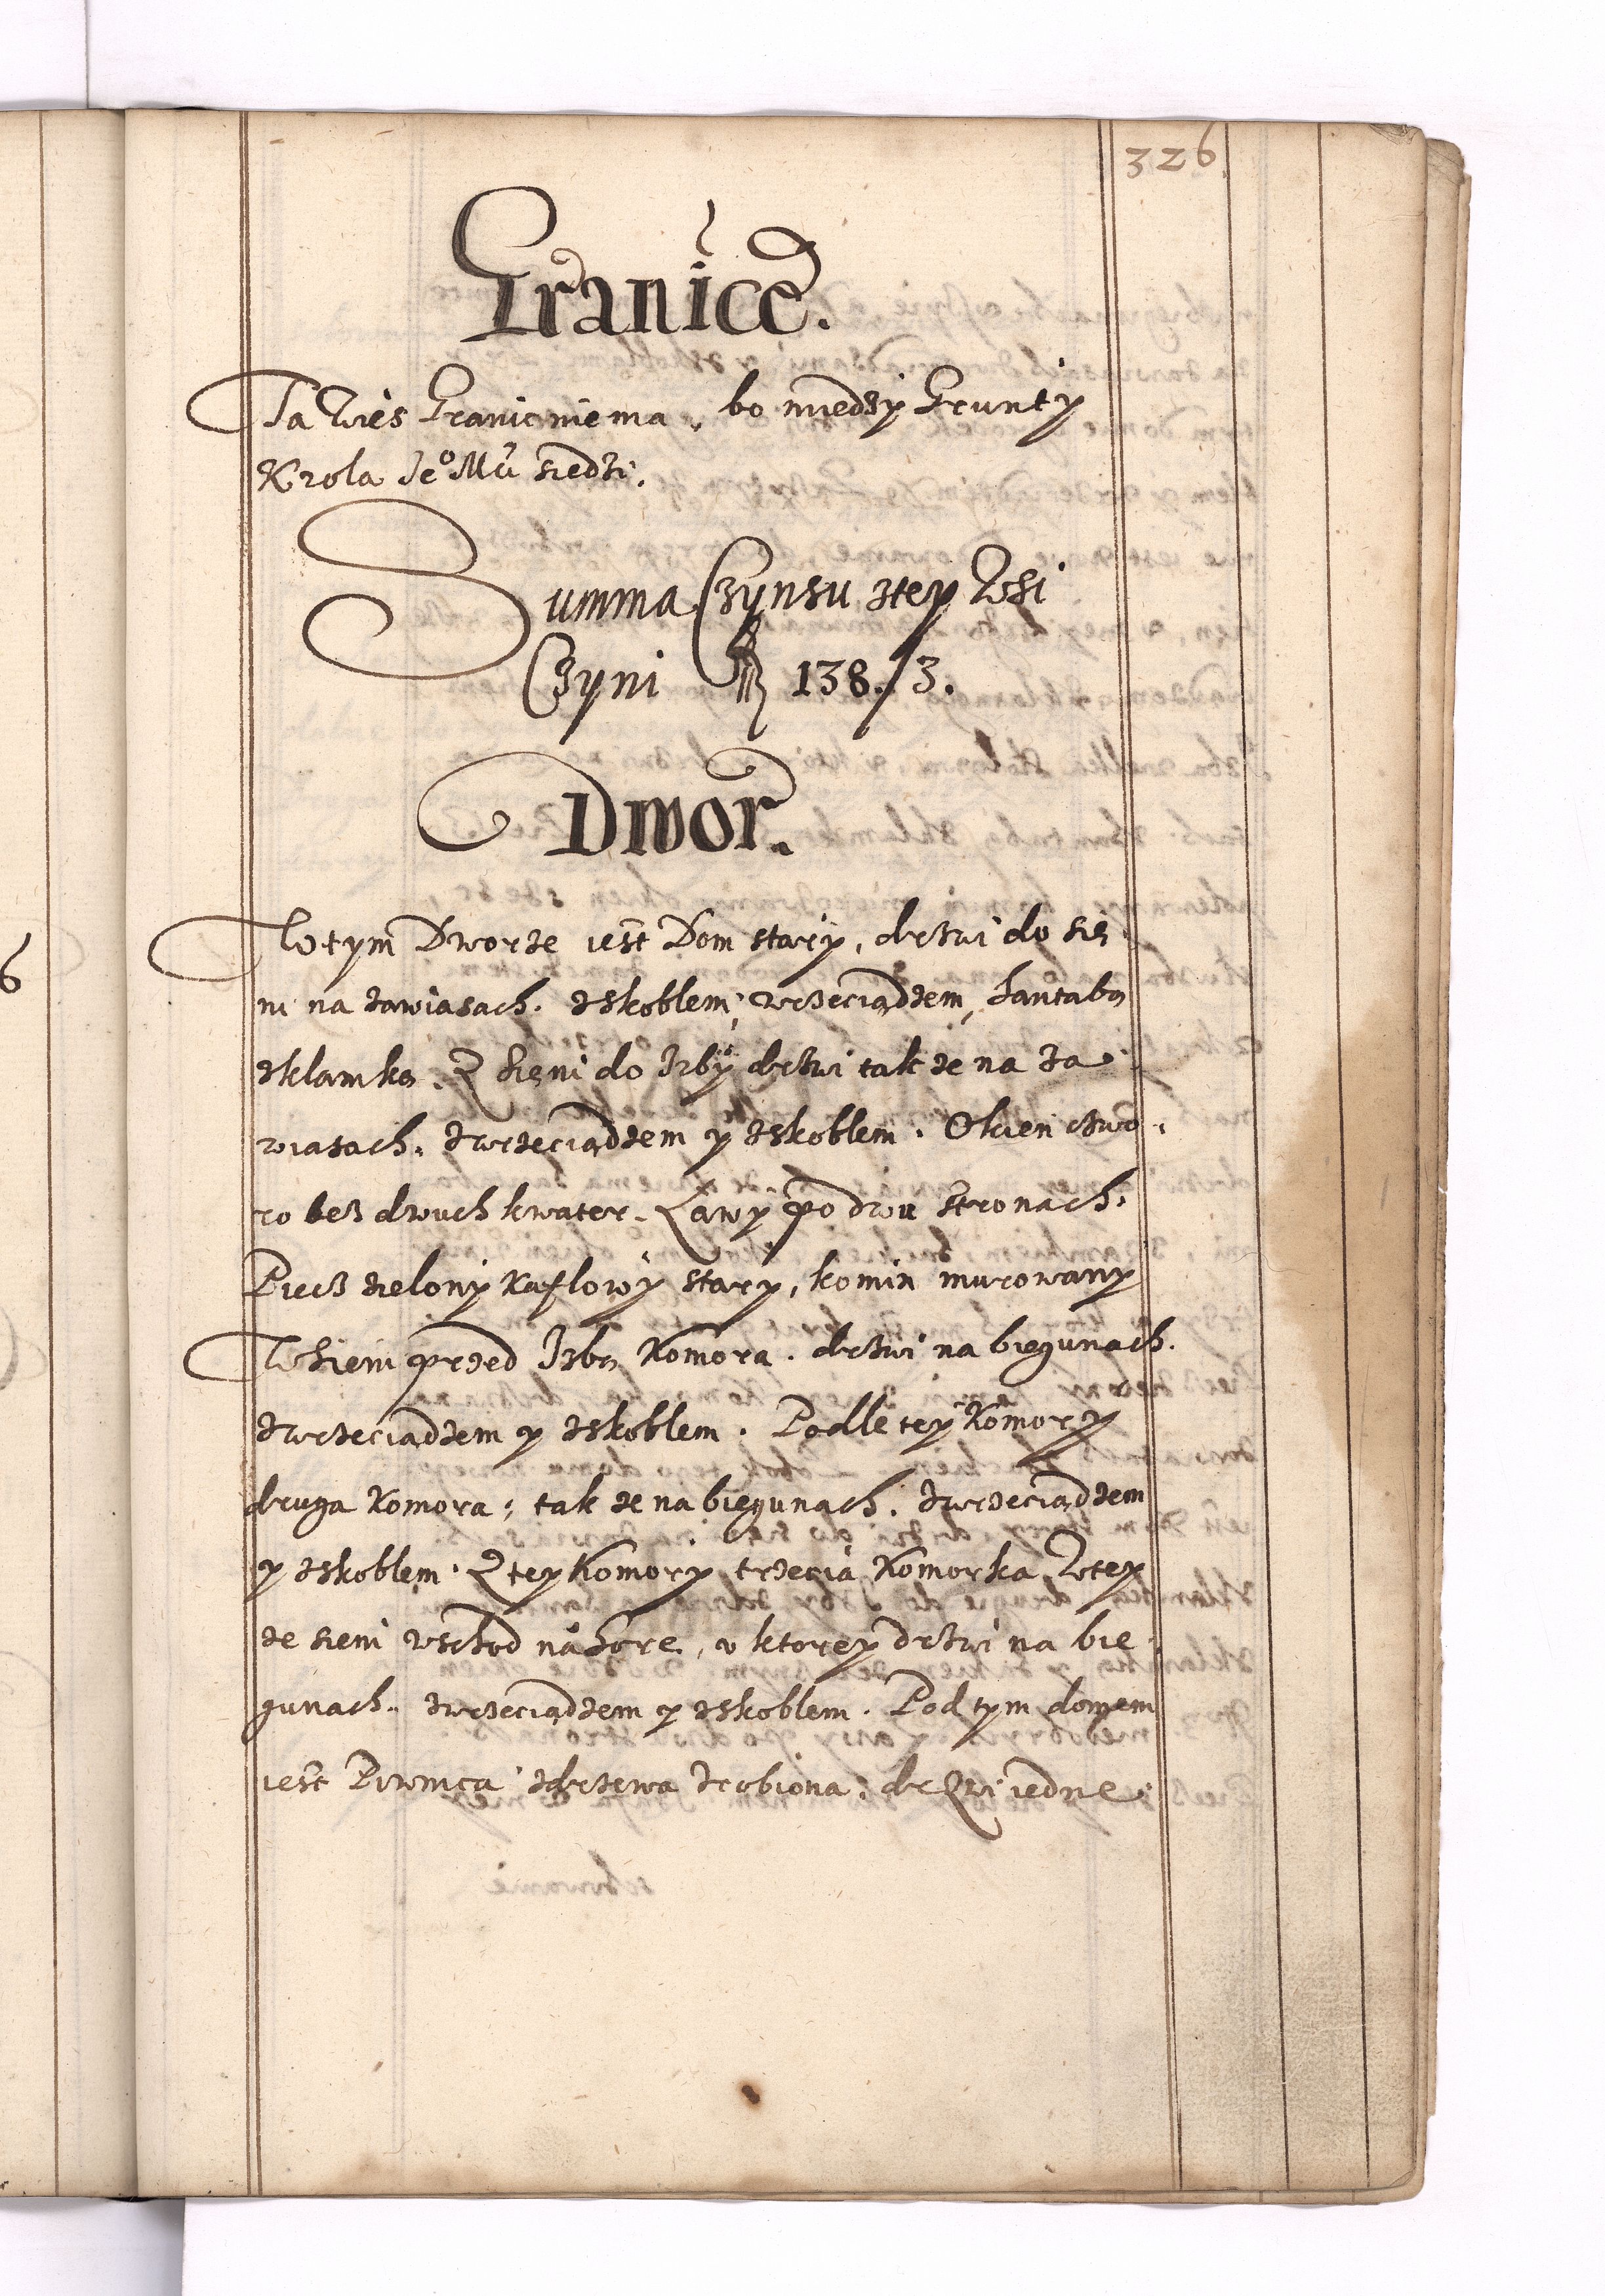 326
Granice.
Ta Wies Granic niema, bo miedzy Grunty
Krola Jeº Mci siedzi.
Summa Czynszu z tey Wsi
Czyni fl 138./3.
Dwor.
W tym Dworze iest Dom stary, drzwi do sie
ni na zawiasach. z skoblem, wrzeciądzem, hantabą
z klamką. Z Sieni do Izby drzwi takze na za
wiasach. z wrzeciądzem y z skoblem. Okien czwo
ro bez dwuch kwater. Ławy po dwu stronach.
Piecz zielony Kaflowy stary, komin murowany
W Sieni przed Izbą Komora. drzwi na biegunach.
z wrzeciądzem y z skoblem. Podle tey Komory
druga Komora, takze na biegunach. z wrzeciądzem
y z skoblem. Z tey Komory trzecia Komorka W tey
ze sieni wschod na Gore, v ktorey drzwi na bie
gunach. z wrzeciądzem y z skoblem. Pod tym domem
iest Piwnica z drzewa zrobiona, drzwi iedne